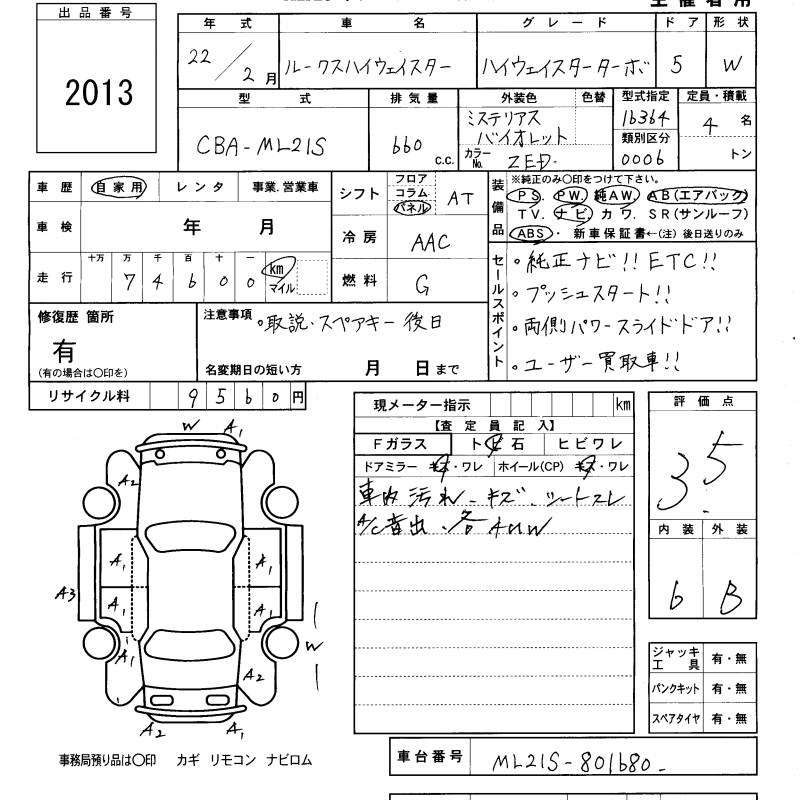 出品番号
2013
年 式 車 名 グ レ ー ド ドア 形状
22/2月 ルークスハイウェイスター ハイウェイスターターボ 5 W
型 式 排気量 外装色 色替 型式指定 定員・積載
CBA-ML21S 660 c.c. ミステリアス バイオレット 16364 4 名
類別区分
カラーNo. ZED 0006 トン
車歴 自家用 レンタ 事業.営業車
シフト フロア コラム パネル AT
装備品
※純正のみ〇印をつけて下さい。
PS. PW. 純AW. AB(エアバック)
TV. ナビ. カワ. SR(サンルーフ)
ABS・ 新車保証書←(注) 後日送りのみ
車検 年 月
冷房 AAC
走行 十万 万 千 百 十 一
74600 km マイル
燃料 G
セールスポイント
。純正ナビ!! ETC!!
。プッシュスタート!!
。両側パワースライドドア!!
。ユーザー買取車!!
修復歴 箇所
有
(有の場合は〇印を)
注意事項 。取説・スペアキー 後日
名変期日の短い方 月 日まで
リサイクル料 9560円
現メーター指示 km
【査 定 員 記 入】
Fガラス ト ビ 石 ヒビワレ
ドアミラー キズ・ワレ ホイール(CP) キズ・ワレ
車内汚れ キズ
評価点
3.5
内装 外装
6 B
W A1
A2
A1 A1
A3 A1 A1
W
A1
A2
A2 A1
ジャッキ工具 有・無
パンクキット 有・無
スペアタイヤ 有・無
事務局預り品は〇印 カギ リモコン ナビロム
車台番号 ML21S-801680